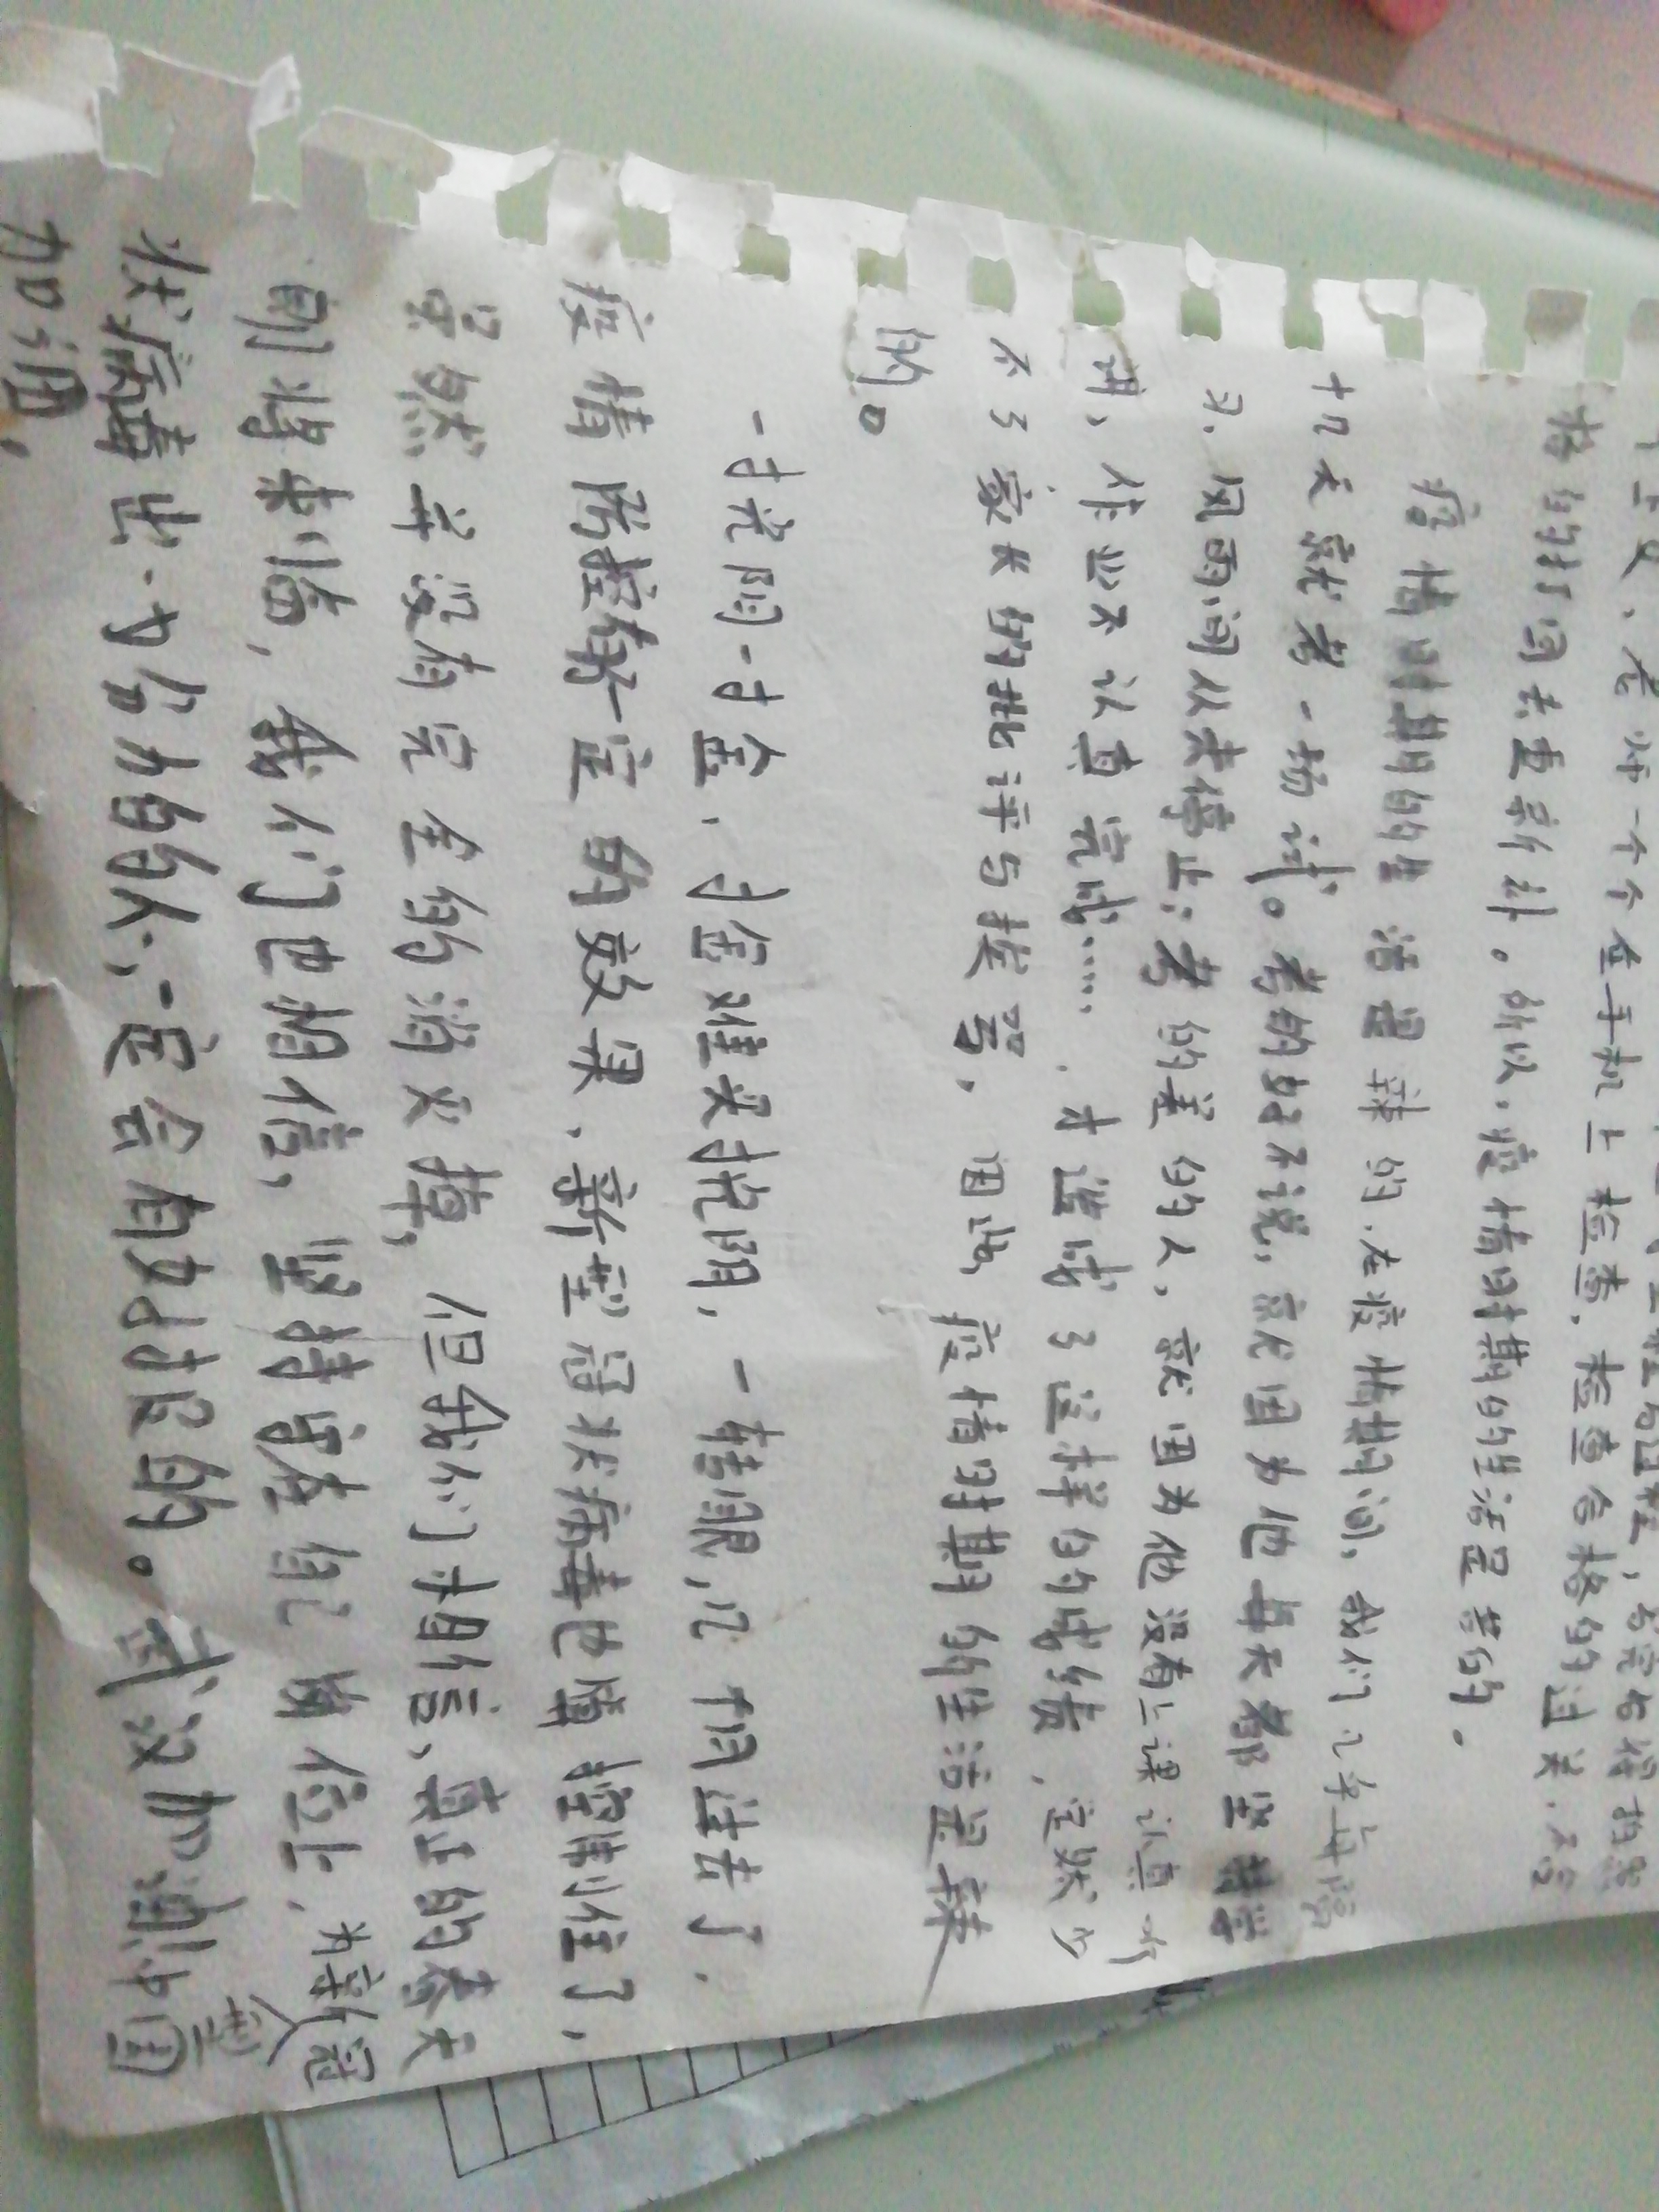 上交、老师一个个在手机上检查，检查合格的过关，不合
格的打回去重新补。所以，疫情时期的生活是苦的。
疫情时期的生活是辣的，在疫情期间，我们几乎每隔
十几天就考一场试。考的好不说，就因为他每天都坚持学
习，风雨间从未停止；考的差的人，就因为他没有上课认真听
讲，作业不认真完成……，才造成了这样的成绩，定然少
不了家长的批评与挨骂，因此，疫情时期的生活是辣
的。
一寸光阴一寸金，寸金难买寸光阴，一转眼，几个月过去了，
疫情防控有了一定的效果，新型冠状病毒也慢慢控制住了，
虽然并没有完全的消灭掉，但我们相信，真正的春天
即将来临，我们也相信，坚持守在自己岗位上，为新型冠
状病毒出一份力的人，一定会有好报的。武汉加油！中国
加油！